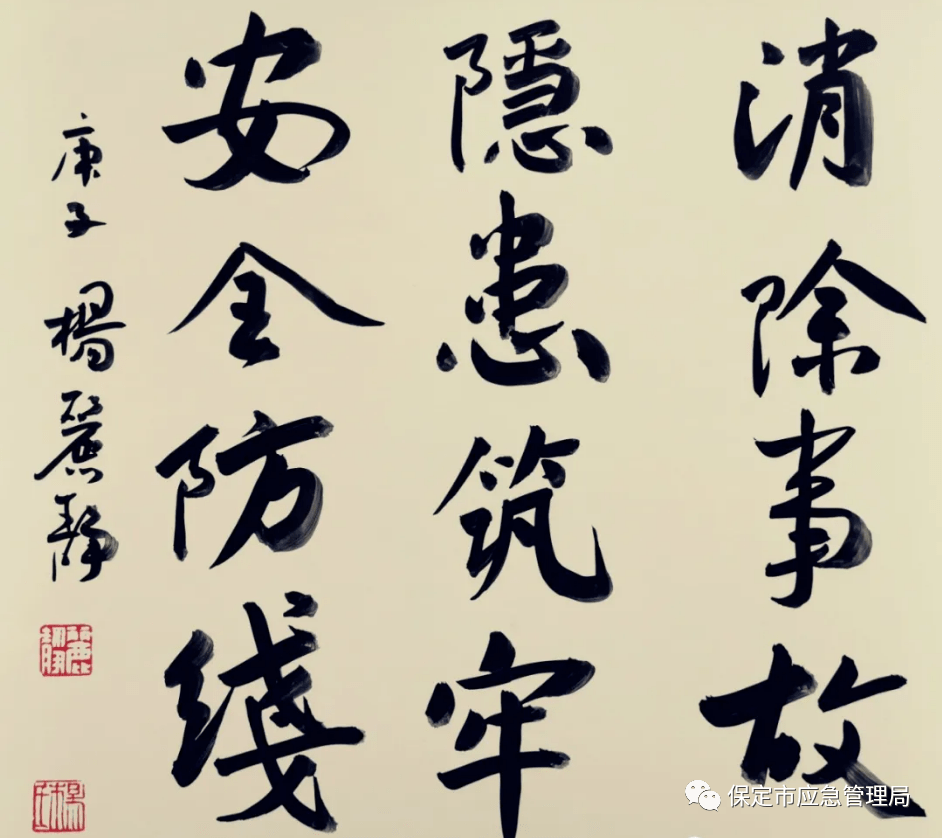 消除事故
隐患筑牢
安全防线
庚子 楊麗靜
麗靜
保定市应急管理局